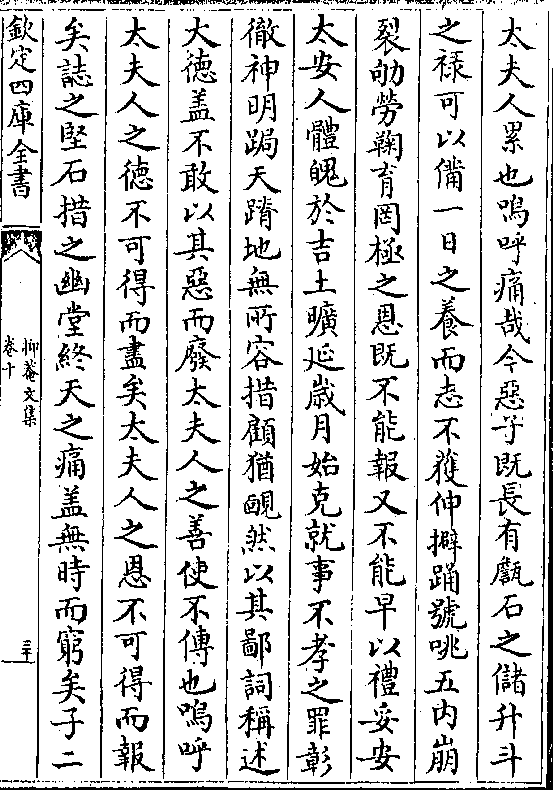 太夫人累也嗚呼痛哉今惡子既長有甔石之儲升斗
之禄可以備一日之養而志不獲伸擗踊號咷五内崩
裂劬勞鞠育罔極之恩既不能報又不能早以禮妥安
太安人體魄於吉土曠延歲月始克就事不孝之罪彰
徹神明跼天蹐地無所容措顧猶靦然以其鄙詞稱述
大徳盖不敢以其惡而廢太夫人之善使不傳也嗚呼
太夫人之徳不可得而盡矣太夫人之恩不可得而報
矣誌之堅石措之幽堂終天之痛盖無時而窮矣子二
欽定四庫全書
抑菴文集
卷十
三十一